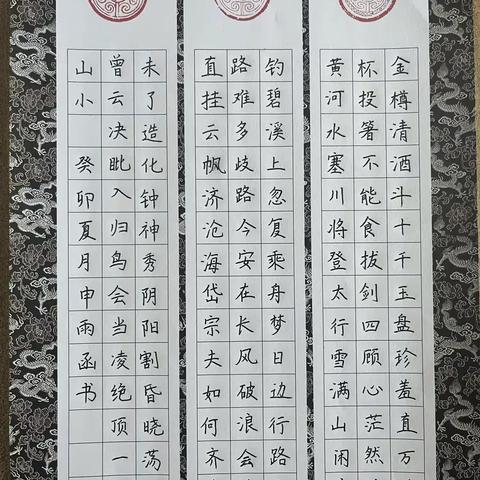 金樽清酒斗十千玉盘珍羞直万
杯投箸不能食拔剑四顾心茫然
黄河水塞川将登太行雪满山闲
钓碧溪上忽复乘舟梦日边行路
路难多歧路今安在长风破浪会
直挂云帆济沧海岱宗夫如何齐
未了造化钟神秀阴阳割昏晓荡
曾云决眦入归鸟会当凌绝顶一
山小 癸卯夏月申雨函书